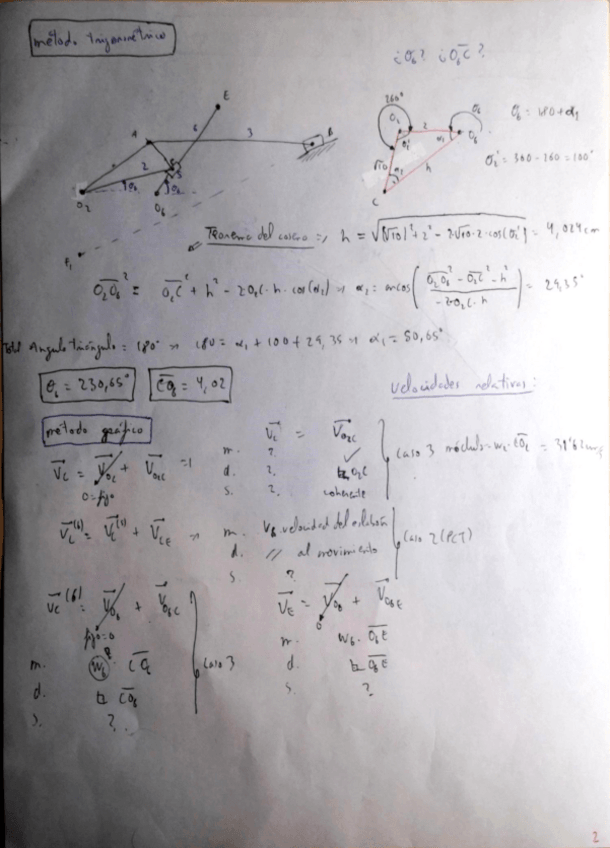 método trigonométrico
¿θ₆? ¿O₆C?
260°
θ₆ = 180 + α₁
θ₂' = 360 - 260 = 100°
A
E
B
O₂
O₆
2
6
3
√10
h
C
Teorema del coseno ⇒ h = √((√10)² + 2² - 2·√10·2·cos(θ₂')) = 4,024 cm
O₂O₆² = O₂C² + h² - 2O₂C·h·cos(α₂) ⇒ α₂ = arcos((O₂O₆² - O₂C² - h²)/(-2O₂C·h)) = 29,35°
Total Angulo triángulo = 180° ⇒ 180 = α₁ + 100 + 29,35 ⇒ α₁ = 50,65°
θ₆ = 230,65°
CO₆ = 4,02
Velocidades relativas:
método gráfico
V_C = V_O₂ + V_O₂C
0=fijo
V_C = V_O₂C
m. ? ✓
d. ? ⊾O₂C
s. ? coherente
caso 3
V_C⁽⁶⁾ = + V_CE ⇒ m. V₆ velocidad del eslabón
d. // al movimiento
s. ?
Caso 2 (PCT)
V_C⁽⁶⁾ = V_O₆ + V_O₆C
fijo=0
m. W₆ · CO₆
d. ⊾ CO₆
s. ?
caso 3
V_E = V_O₆ + V_O₆E
0
m. W₆ · O₆E
d. ⊾ O₆E
s. ?
2